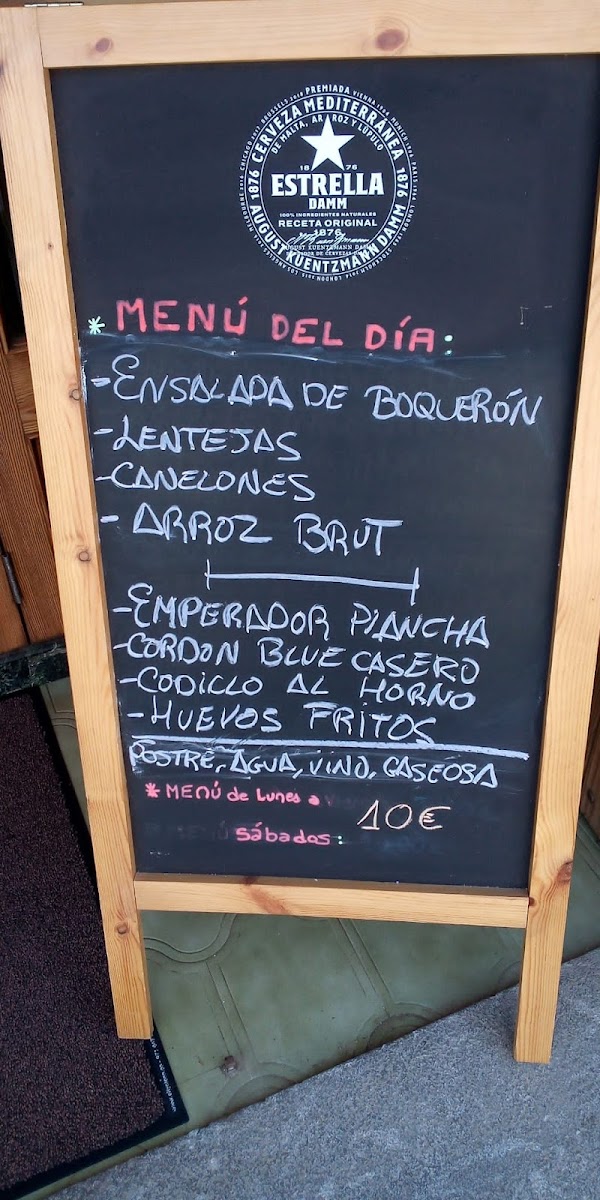 PREMIADA
CERVEZA MEDITERRÁNEA
DE MALTA, ARROZ Y LÚPULO
1876
1876
18 76
ESTRELLA
DAMM
100% INGREDIENTES NATURALES
RECETA ORIGINAL
1876
AUGUST KUENTZMANN DAMM
* MENÚ DEL DÍA:
- ENSALADA DE BOQUERÓN
- LENTEJAS
- CANELONES
- ARROZ BRUT
- EMPERADOR PLANCHA
- CORDON BLUE CASERO
- CODILLO AL HORNO
- HUEVOS FRITOS
POSTRE, AGUA, VINO, GASEOSA
* MENÚ de Lunes a
10€
sábados: